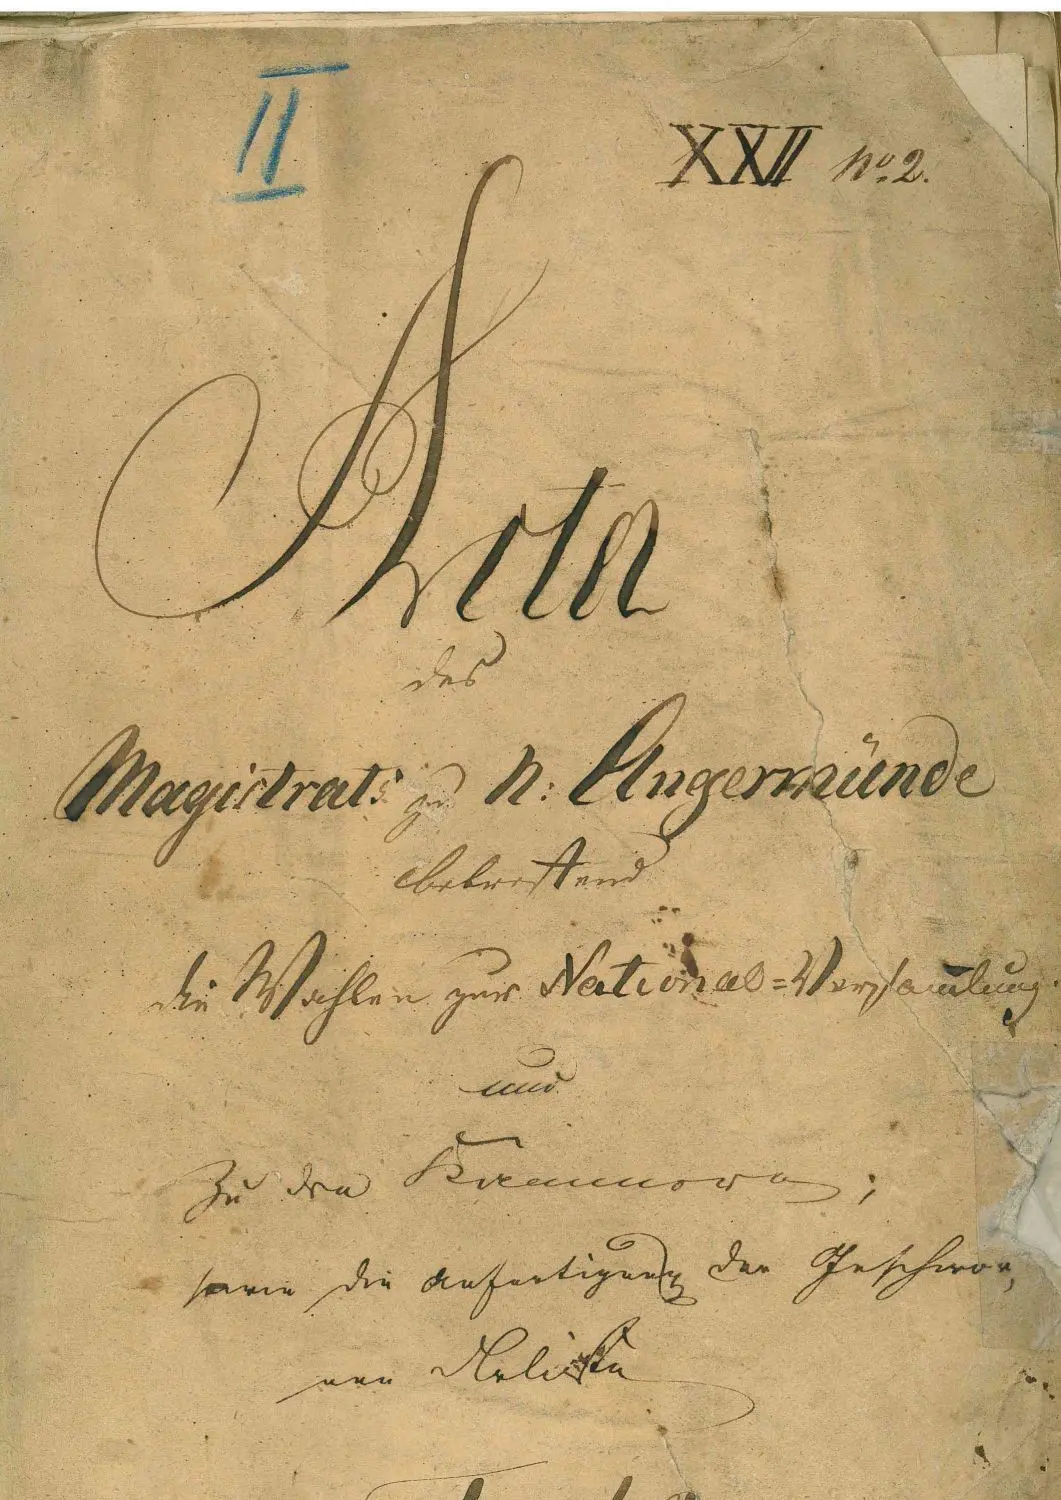 II
XXII No. 2.
Acta
des
Magistrats zu N: Angermünde
betreffend
die Wahlen zur National=Versam̅lung
und
zu den Kammern;
sowie die Anfertigung der Geschwor,
nen